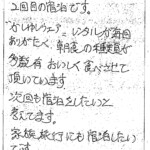 2回目の宿泊です。
ありがたく 朝食の種類が
多数有 おいしく食べさせて
頂いています。
次回も宿泊をしたいと
考えてます。
家族旅行にも宿泊したい
です